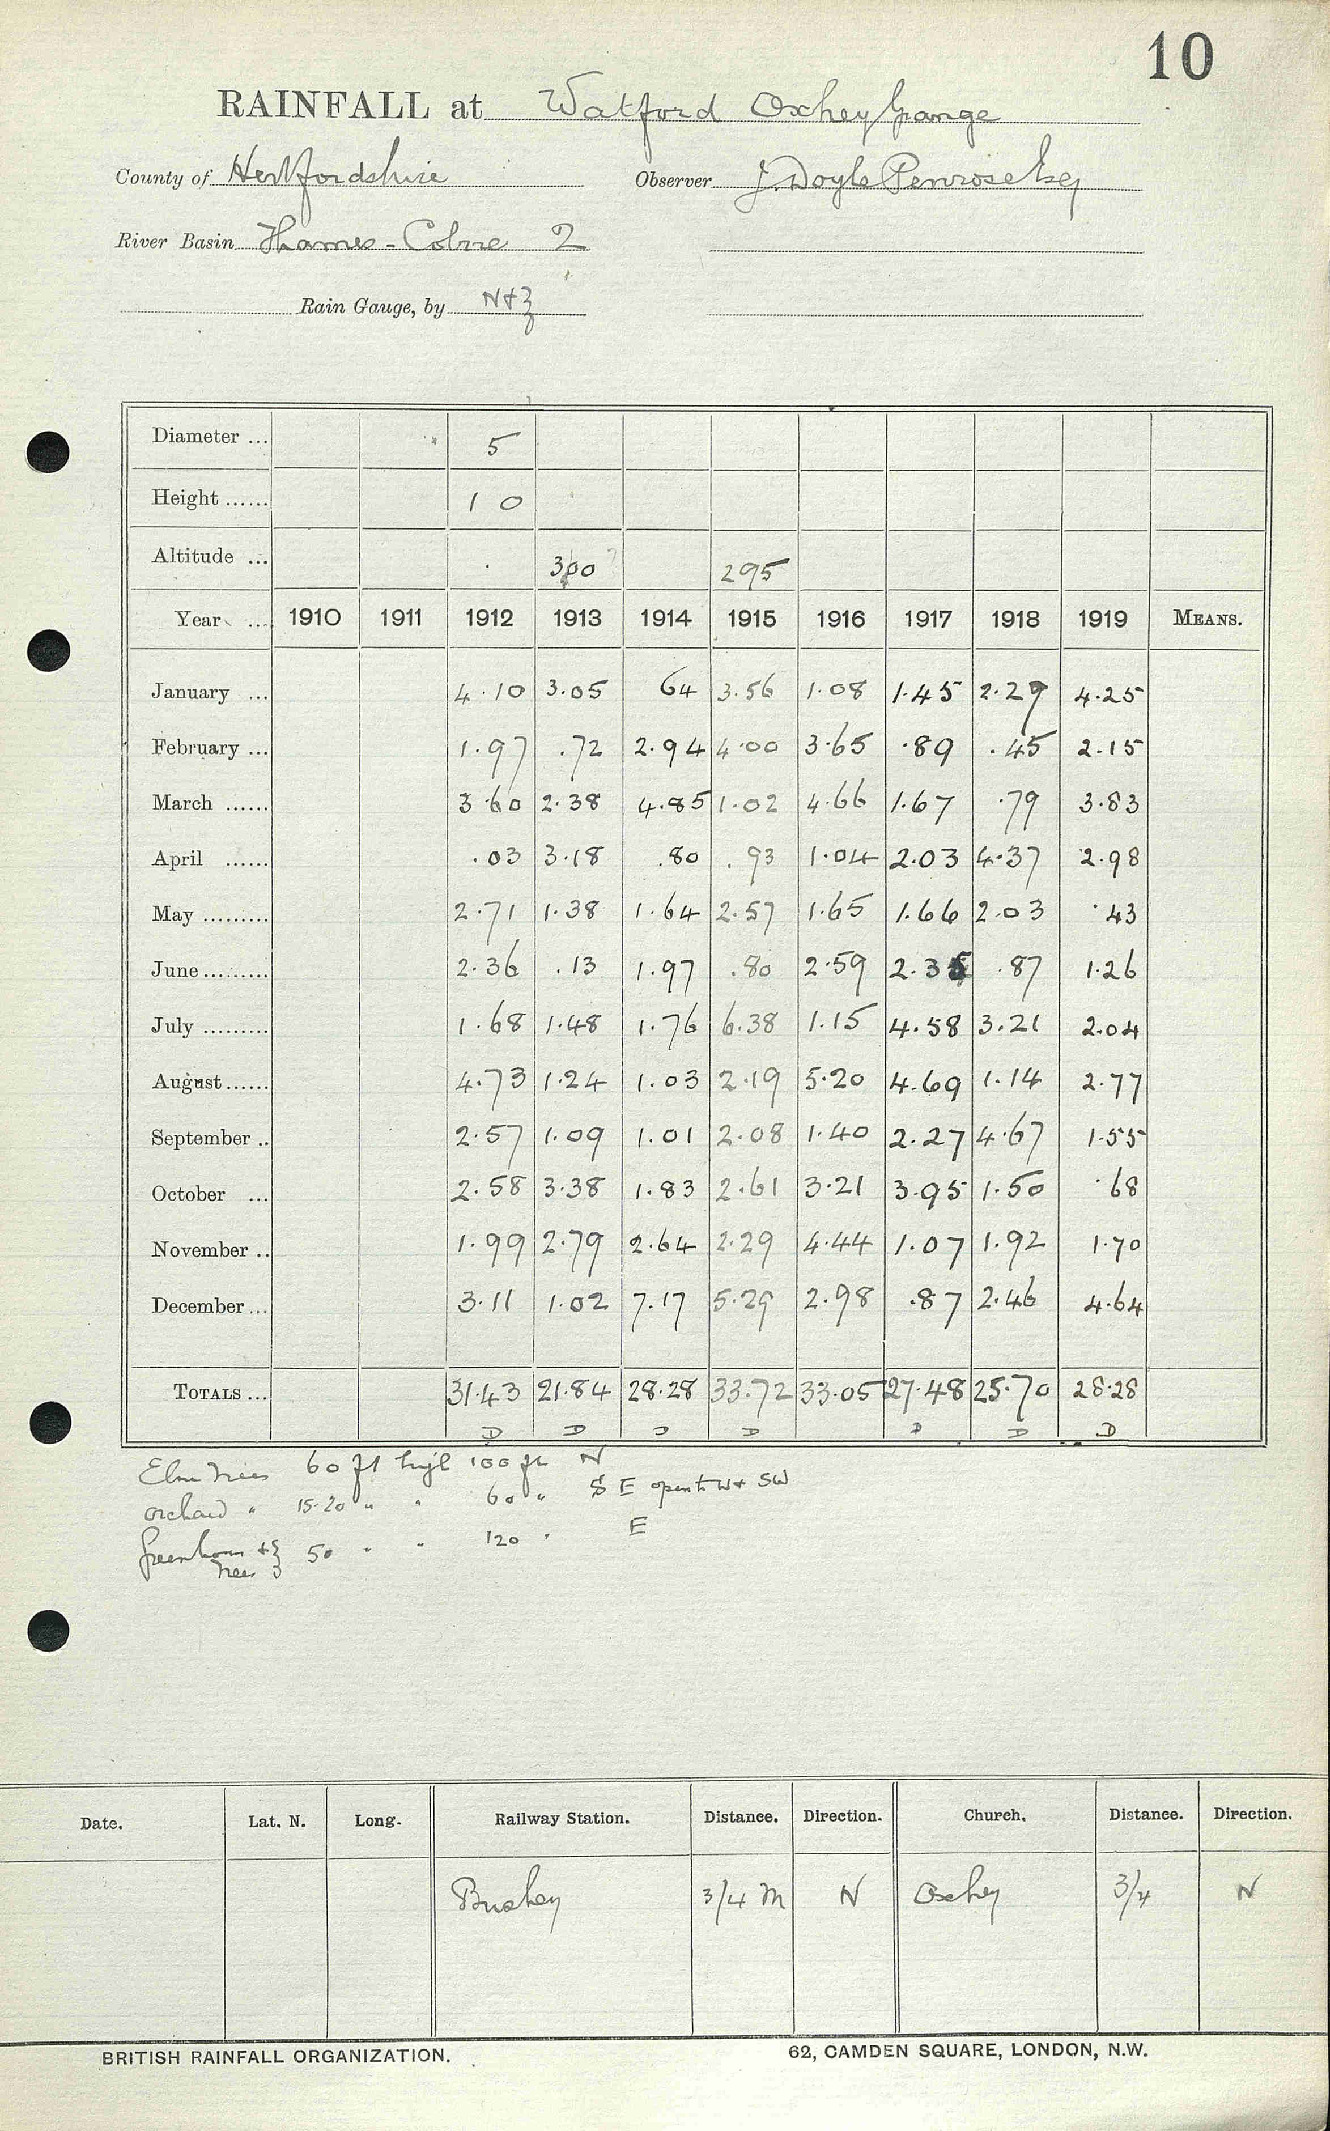 10
RAINFALL at Watford Oxhey Grange
County of Hertfordshire Observer J. Doyle Penrose Esq
River Basin Thames - Colne 2
Rain Gauge, by N & Z
Diameter ... 5
Height ...... 1 0
Altitude ... 300 ? 295
Year ... 1910 1911 1912 1913 1914 1915 1916 1917 1918 1919 MEANS.
January ... 4.10 3.05 64 3.56 1.08 1.45 2.29 4.25
February ... 1.97 .72 2.94 4.00 3.65 .89 .45 2.15
March ...... 3.60 2.38 4.85 1.02 4.66 1.67 .79 3.83
April ...... .03 3.18 .80 .93 1.04 2.03 4.37 2.98
May ......... 2.71 1.38 1.64 2.57 1.65 1.66 2.03 .43
June ......... 2.36 .13 1.97 .80 2.59 2.35 .87 1.26
July ......... 1.68 1.48 1.76 6.38 1.15 4.58 3.21 2.04
August ...... 4.73 1.24 1.03 2.19 5.20 4.69 1.14 2.77
September .. 2.57 1.09 1.01 2.08 1.40 2.27 4.67 1.55
October ... 2.58 3.38 1.83 2.61 3.21 3.95 1.50 .68
November .. 1.99 2.79 2.64 2.29 4.44 1.07 1.92 1.70
December ... 3.11 1.02 7.17 5.29 2.98 .87 2.46 4.64
TOTALS ... 31.43 21.84 28.28 33.72 33.05 27.48 25.70 28.28
D D D D D D D
Elm trees 60 ft high 100 ft N
orchard " 15-20 " " 60 " S E open to W + SW
Greenhouse + 50 " " 120 " E
trees
Date. Lat. N. Long. Railway Station. Distance. Direction. Church. Distance. Direction.
Bushey 3/4 m N Oxhey 3/4 N
BRITISH RAINFALL ORGANIZATION. 62, CAMDEN SQUARE, LONDON, N.W.